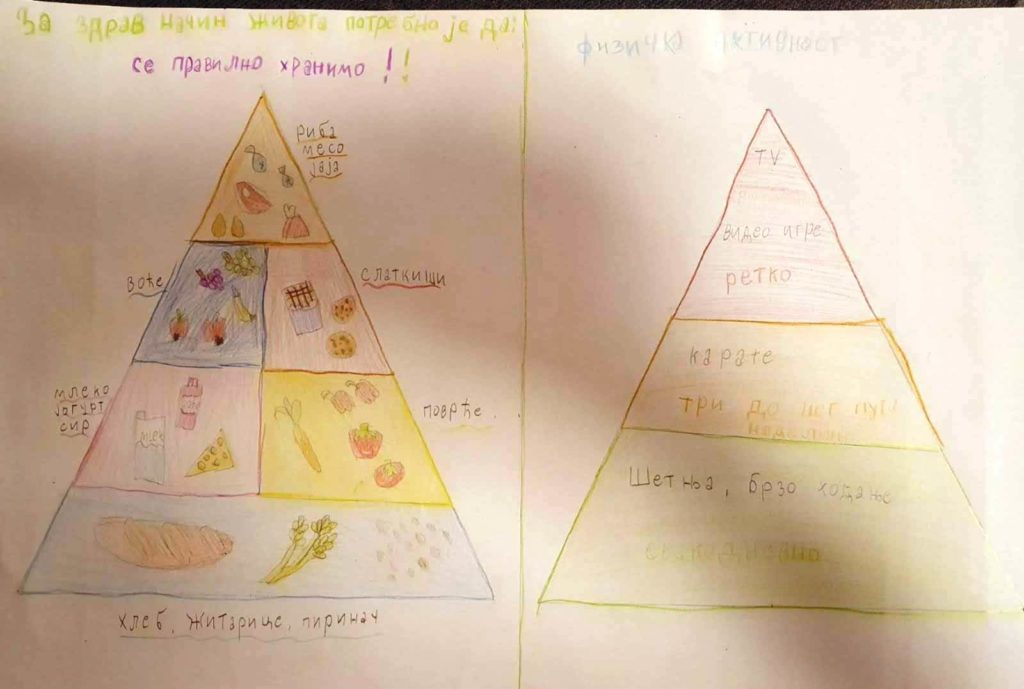 За здрав начин живота потребно је да:
се правилно хранимо!!
риба
месо
јаја
воће
слаткиши
млеко
јагурт
сир
поврће.
хлеб, житарице, пиринач
физичка активност
TV
видео игре
ретко
карате
три до пет пута
недељно
Шетња, брзо ходање
свакодневно